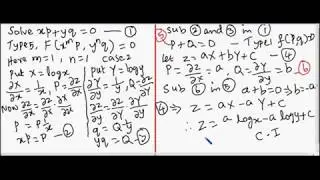 Solve xp+yq=0 —①
Type5, F(x^m p, y^n q)=0
Here m=1, n=1 case2
Put X=logx
∂X/∂x = 1/x, P=∂z/∂X
Now ∂z/∂x = ∂z/∂X ∂X/∂x
p = P 1/x
xp=P —②
Put Y=logy
∂Y/∂y = 1/y, Q=∂z/∂Y
∂z/∂y = ∂z/∂Y ∂Y/∂y
q = Q 1/y
yq=Q —③
⑤ Sub ② and ③ in ①
P+Q=0 – Type1 f(P,Q)=0
Let z=aX+bY+c —④
P=∂z/∂X=a, Q=∂z/∂Y=b —⑥
Sub ⑥ in ⑤ a+b=0⇒b=-a
④⇒ z=aX-aY+c
∴ z=a logx-a logy+c
C.I